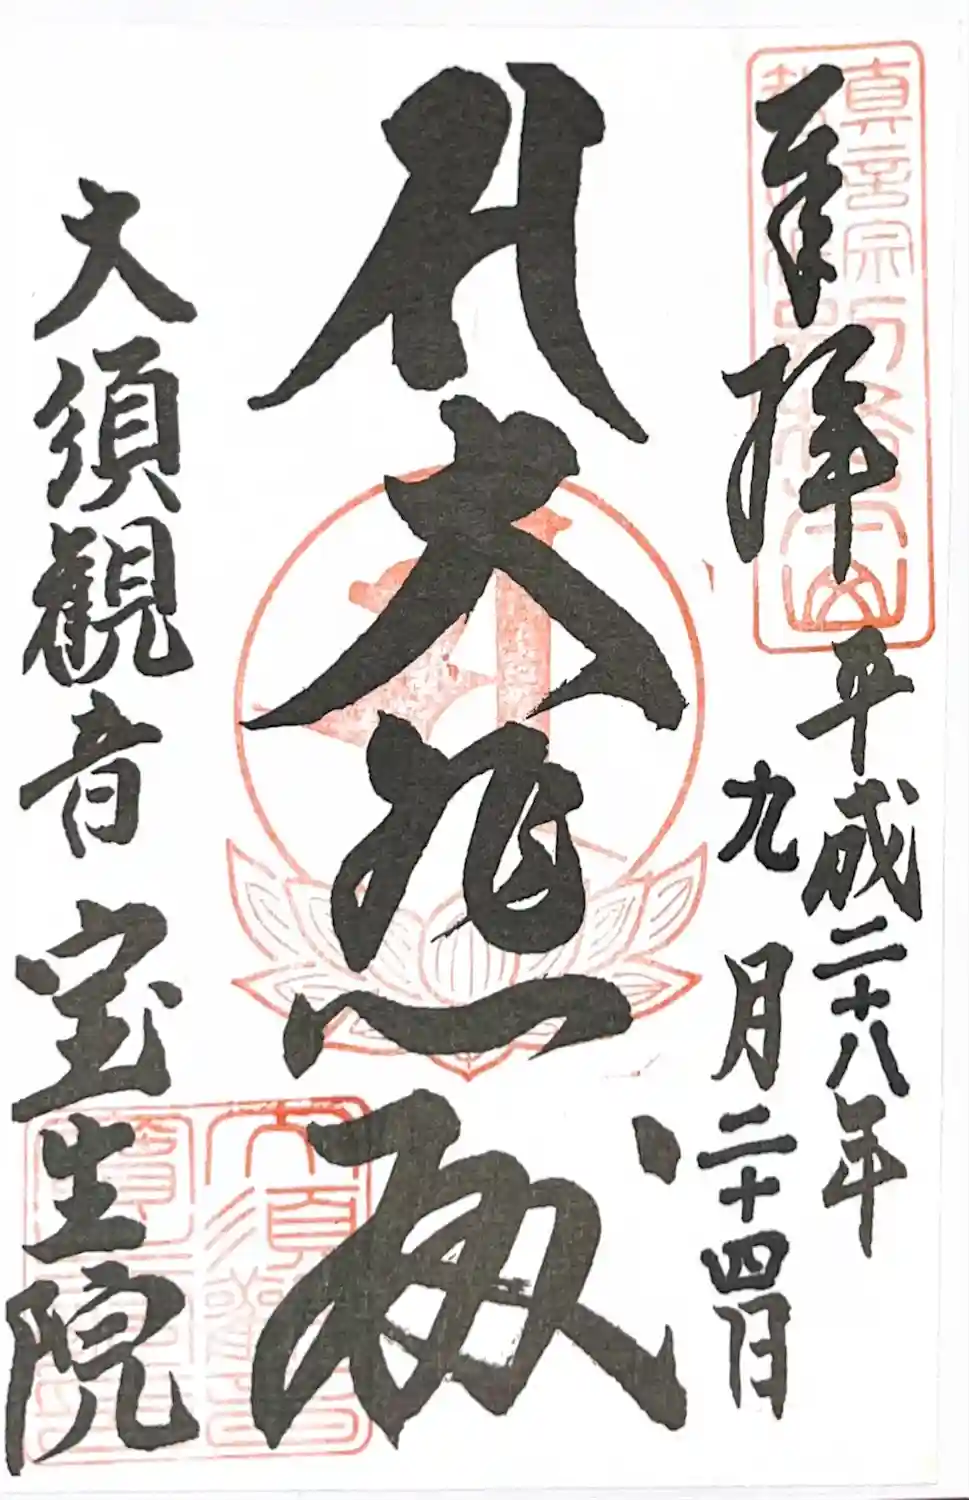 奉拝
平成二十八年
九月二十四日
大悲殿
大須観音 宝生院
真言宗
大須観音